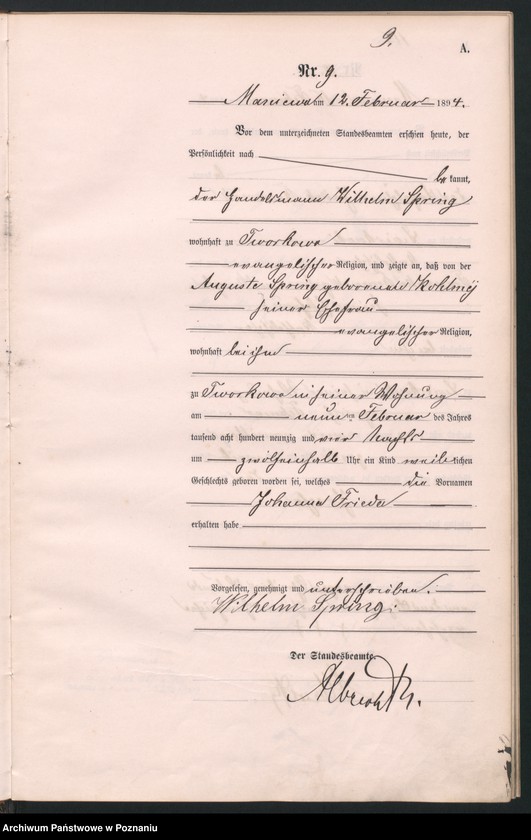 9.
A.
Nr. 9.
Maniewo am 12. Februar 1894.
Vor dem unterzeichneten Standesbeamten erschien heute, der
Persönlichkeit nach
be kannt,
der Handelsmann Wilhelm Spring
wohnhaft zu Tworkowo
evangelischer Religion, und zeigte an, daß von der
Auguste Spring geborenen
seiner Ehefrau
evangelischer Religion,
wohnhaft bei ihm
zu Tworkowo in seiner Wohnung
am neunten Februar des Jahres
tausend acht hundert neunzig und vier Nachts
um zwölfeinhalb Uhr ein Kind weiblichen
Geschlechts geboren worden sei, welches die Vornamen
Johanna Frieda
erhalten habe
Vorgelesen, genehmigt und unterschrieben.
Wilhelm Spring.
Der Standesbeamte.
Albrecht
Archiwum Państwowe w Poznaniu